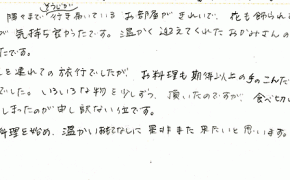 そうじが
隅々まで 行き届いている お部屋が きれいで、花も飾られ
が 気持ち 良かったです。温かく 迎えてくれた おかみさんの
たです。
しを連れての旅行でしたが お料理も 期待以上の 手のこんだ
でした。いろいろな物を 少しずつ 頂いたのですが 食べ切
しまったのが 申し訳ない位です。
料理を始め、温かいおもてなしに 是非また 来たいと思います。